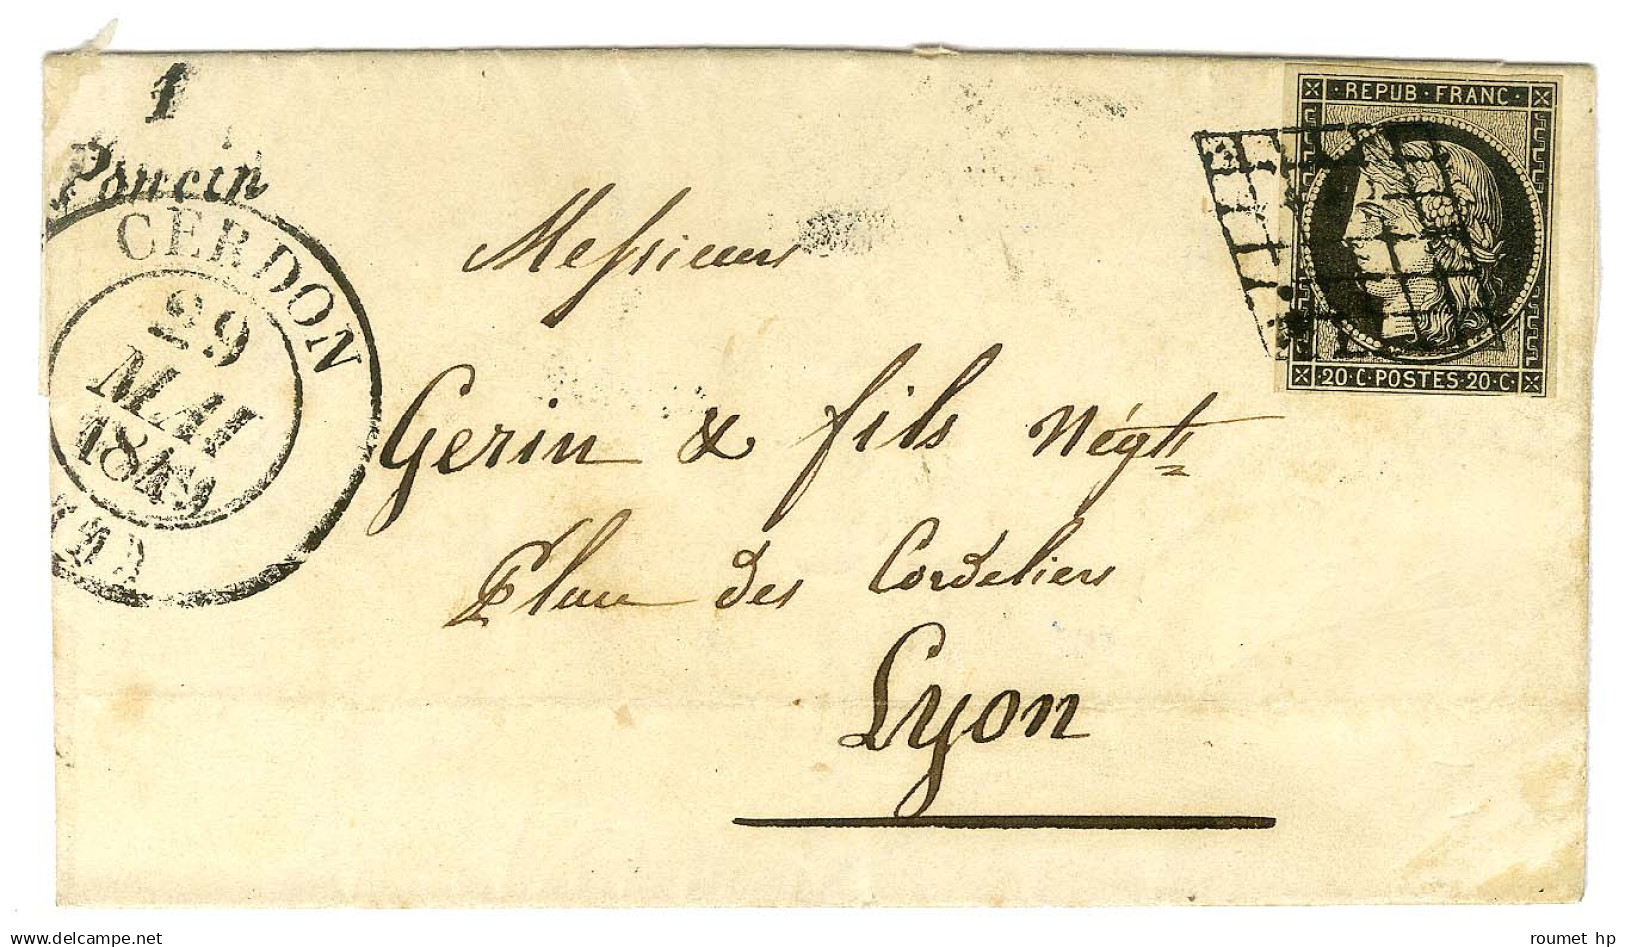 1
Poncin
CERDON
29
MAI
1849
REPUB · FRANC ·
20 · C · POSTES 20 · C ·
Messieurs
Gerin & fils Négts
Place des Cordeliers
Lyon
roumet hp
www.delcampe.net